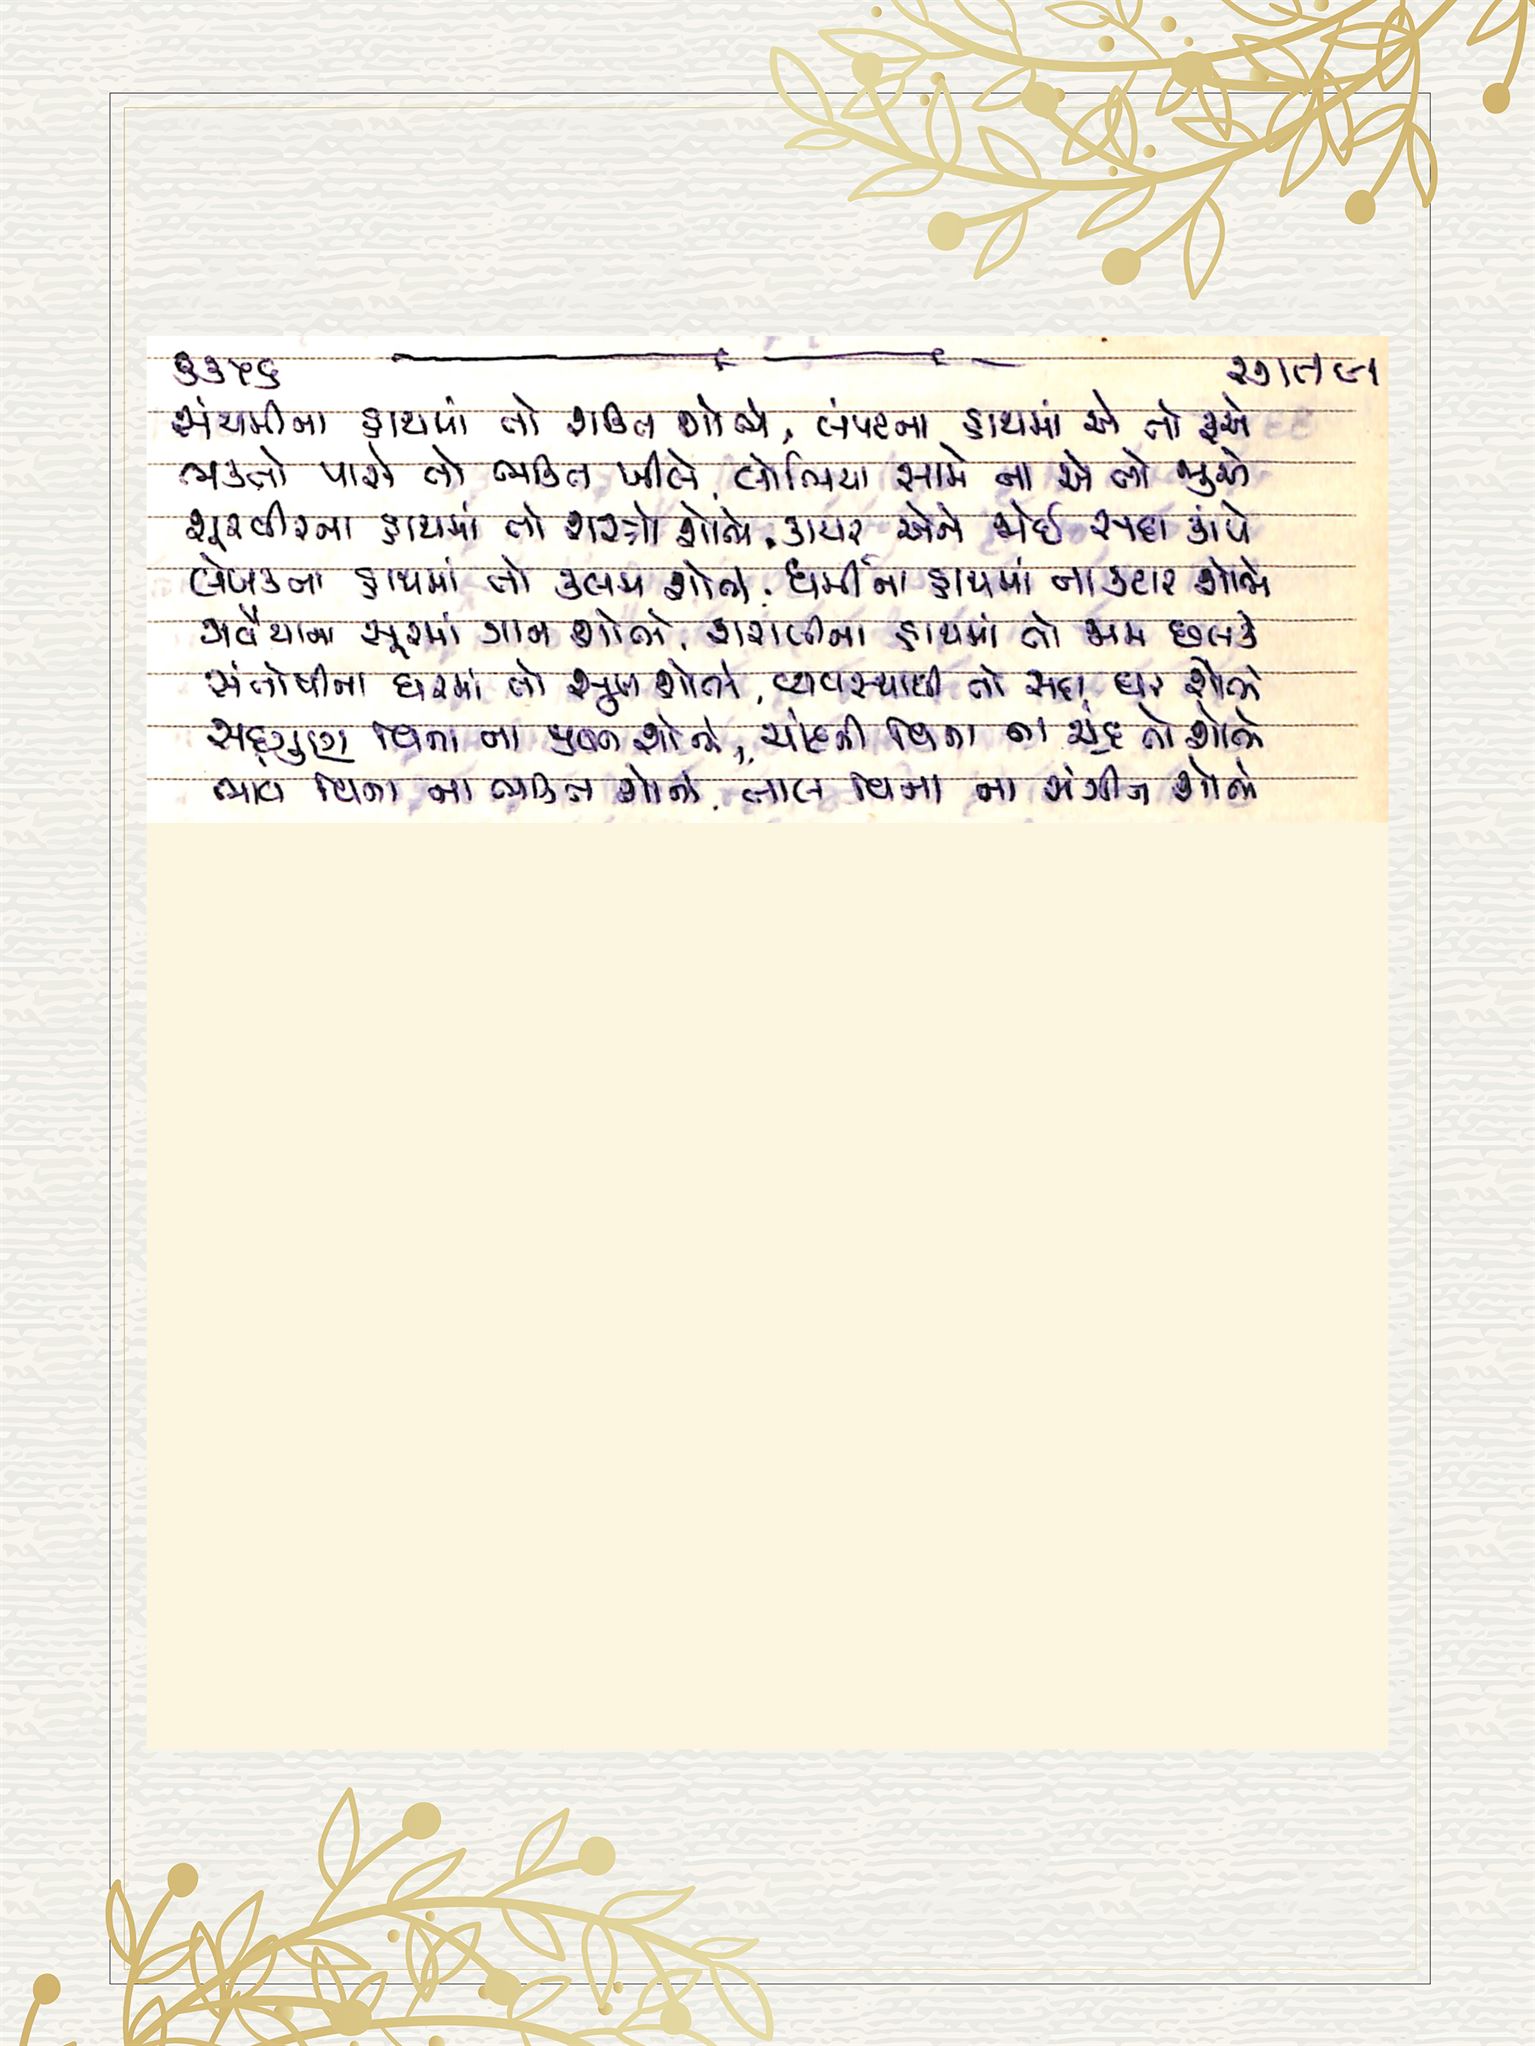 સંયમીના હાથમાં તો શક્તિ શોભે, લંપટના હાથમાં એ તો રૂએ
ભક્તો પાસે તો ભક્તિ ખીલે, લોભિયા સામે ના એ તો જુએ
શૂરવીરના હાથમાં તો શસ્ત્રો શોભે, કાયર એને જોઈ સદા કાંપે
લેખકના હાથમાં તો કલમ શોભે, ધર્મીના હાથમાં ના કટાર શોભે
ગવૈયાના સૂરમાં ગાન શોભે, શરાબીના હાથમાં તો જામ છલકે
સંતોષીના ઘરમાં તો સુખ શોભે, વ્યવસ્થાથી તો સદા ઘર શોભે
સદ્દગુણ વિના ના શોભે, ચાંદની વિના ના ચંદ્ર તો શોભે
ભાવ વિના ના ભક્તિ શોભે, તાલ વિના ના સંગીત શોભે